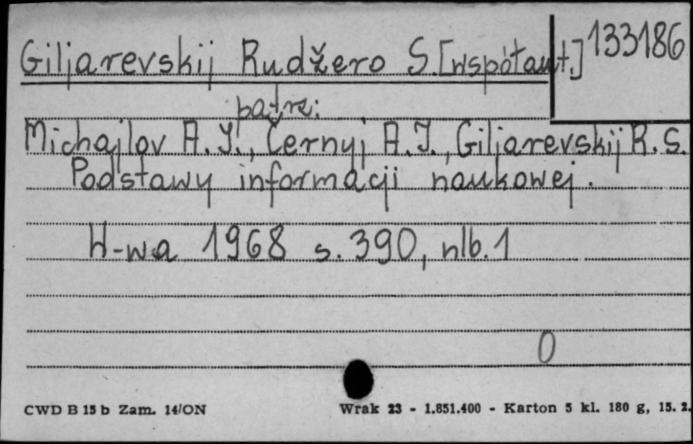 Giljarevskij Rudžero S. [współaut.] 133186
patrz:
Michajlov A. I., Černyj A. I., Giljarevskij R. S.
Podstawy informacji naukowej.
W-wa 1968 s. 390, nlb. 1
0
CWD B 15 b Zam. 14/ON Wrak 23 - 1.851.400 - Karton 5 kl. 180 g, 15. 2.